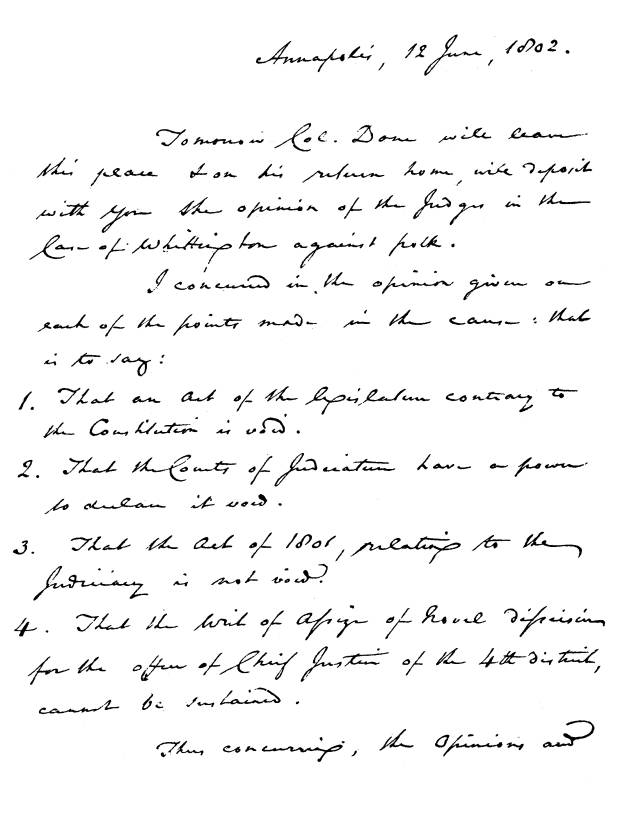 Annapolis, 12 June, 1802.
Tomorrow Col. Done will leave
this place & on his return home, will deposit
with you the opinion of the Judges in the
Case of Whittington against polk.
I concurred in the opinion given on
each of the points made in the cause: that
is to say:
1. That an Act of the legislature contrary to
the Constitution is void.
2. That the Courts of Judicature have a power
to declare it void.
3. That the Act of 1801, relating to the
Judiciary is not void.
4. That the Writ of Assize of Novel disseisin
for the office of Chief Justice of the 4th district,
cannot be sustained.
Thus concurring, the Opinions and